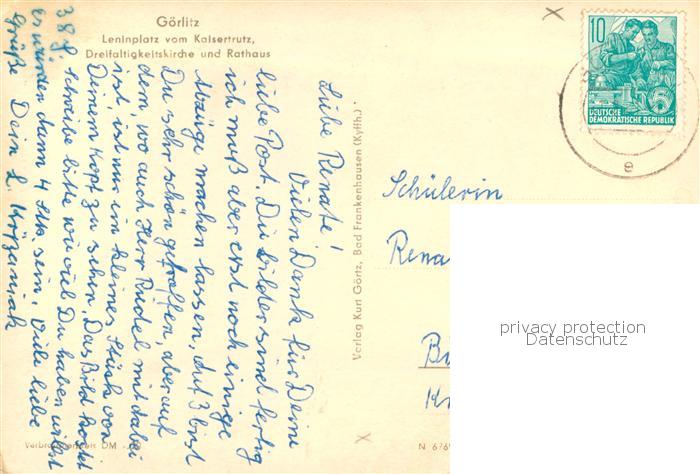 Görlitz
Leninplatz vom Kaisertrutz,
Dreifaltigkeitskirche und Rathaus
Liebe Renate!
Vielen Dank für Deine
liebe Post. Die Bilder sind fertig
ich muß aber erst noch einige
Abzüge machen lassen. Auf 3 bist
Du sehr schön getroffen, aber auf
dem, wo auch Herr Rudel mit dabei
ist, ist nur ein kleines Stück von
Deinem Kopf zu sehen. Das Bild kostet
38 Pf. Schreibe bitte wie viel Du haben willst
es würden dann 4 Stk. sein. Viele liebe
Grüße Dein L.
Verlag Kurt Görtz, Bad Frankenhausen (Kyffh.)
10
5
DEUTSCHE
DEMOKRATISCHE REPUBLIK
e
Schülerin
Rena
privacy protection
Datenschutz
DM
N 676